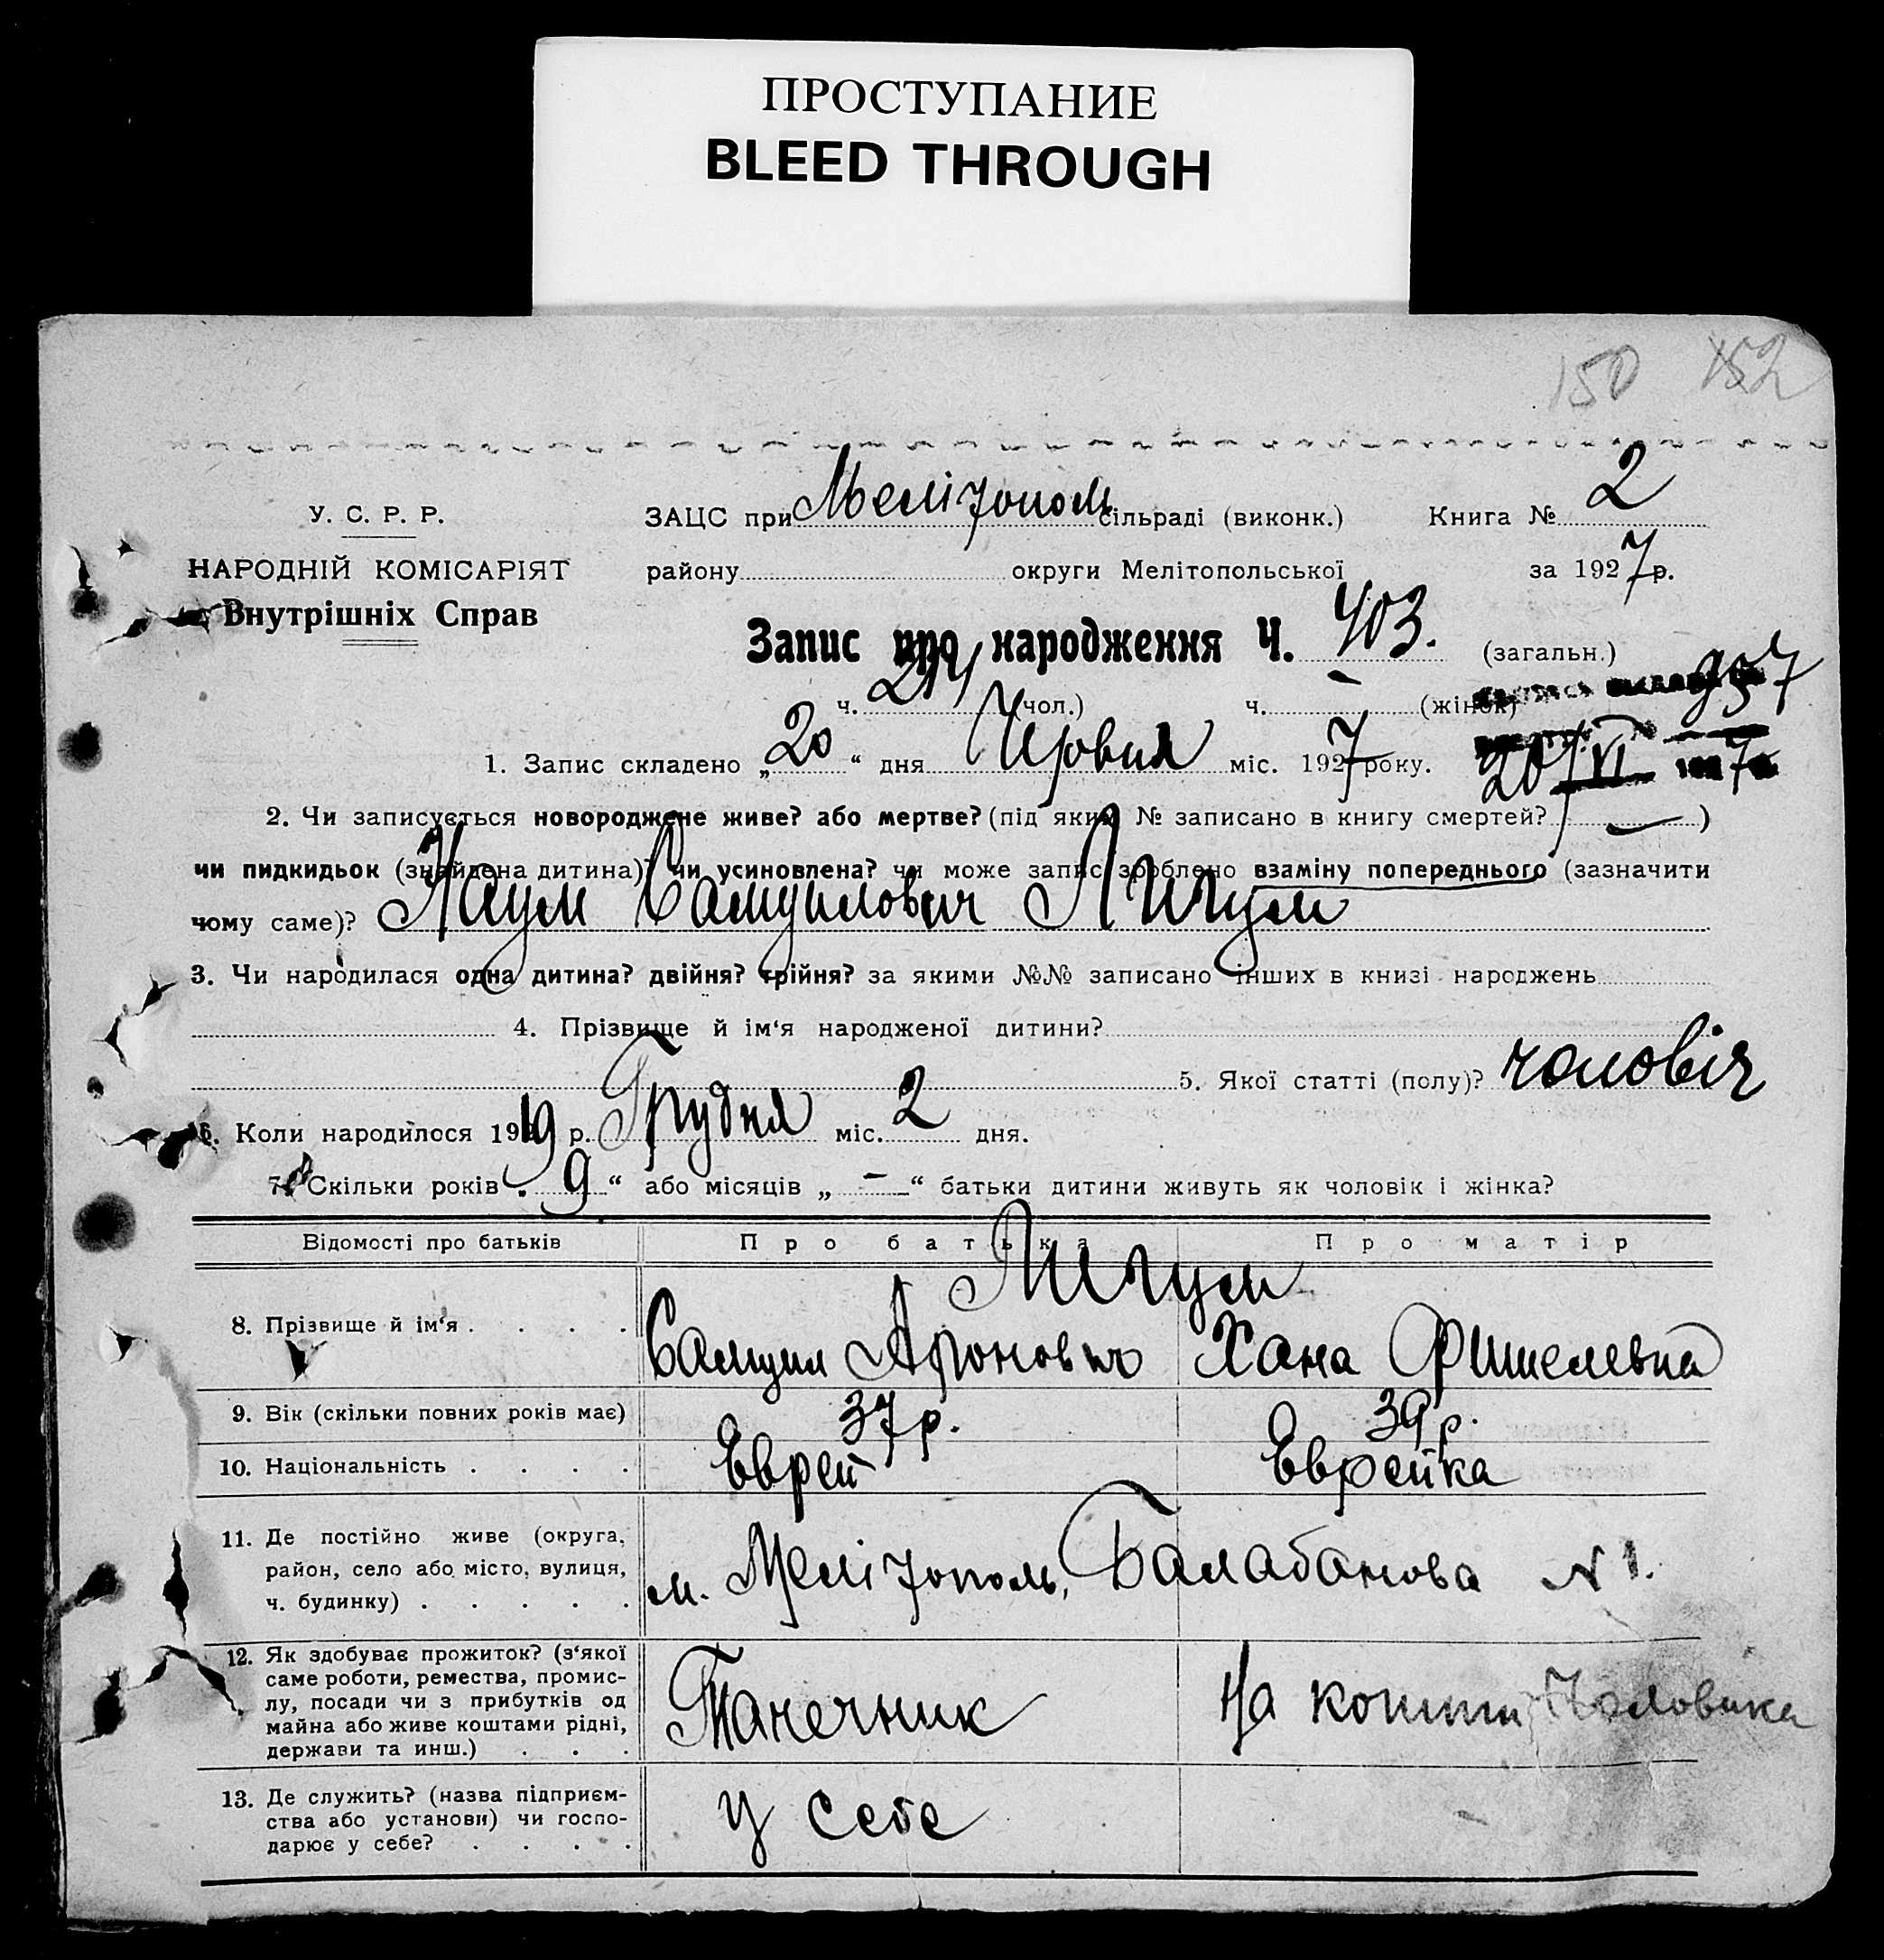 ПРОСТУПАНИЕ
BLEED THROUGH
150 152
У. С. Р. Р.
НАРОДНІЙ КОМІСАРІЯТ
Внутрішніх Справ
ЗАЦС при Мелітополь сільраді (виконк.) Книга № 2
району округи Мелітопольської за 1927 р.
Запис про народження Ч. 403. (загальн.)
ч. 214 (чол.) ч. - (жінок) 957
1. Запис складено „20“ дня Червня міс. 1927 року. 20/VI 7
2. Чи записується новороджене живе? або мертве? (під яким № записано в книгу смертей? — )
чи пидкидьок (знайдена дитина)? чи усиновлена? чи може запис зроблено взаміну попереднього (зазначити
чому саме)? Наум Самуилович Лигум
3. Чи народилася одна дитина? двійня? трійня? за якими №№ записано інших в книзі народжень
4. Прізвище й ім‘я народженої дитини?
5. Якої статті (полу)? чоловіч
6. Коли народилося 1919 р. Грудня міс. 2 дня.
7. Скільки років „9“ або місяців „—“ батьки дитини живуть як чоловік і жінка?
Відомості про батьків Про батька Про матір
Лигум
8. Прізвище й ім‘я . . . . Самуил Аронович Хана Фишелевна
9. Вік (скільки повних років має) 37 р. 39 р.
10. Національність . . . . Еврей Еврейка
11. Де постійно живе (округа, район, село або місто, вулиця, ч. будинку) . . . . . м. Мелітополь, Балабанова № 1.
12. Як здобуває прожиток? (з‘якої
саме роботи, ремества, промис-
лу, посади чи з прибутків од
майна або живе коштами рідні,
держави та инш.) . . . На кошти Чоловика
13. Де служить? (назва підприєм-
ства або установи) чи госпо-
дарює у себе? . . . . У себе